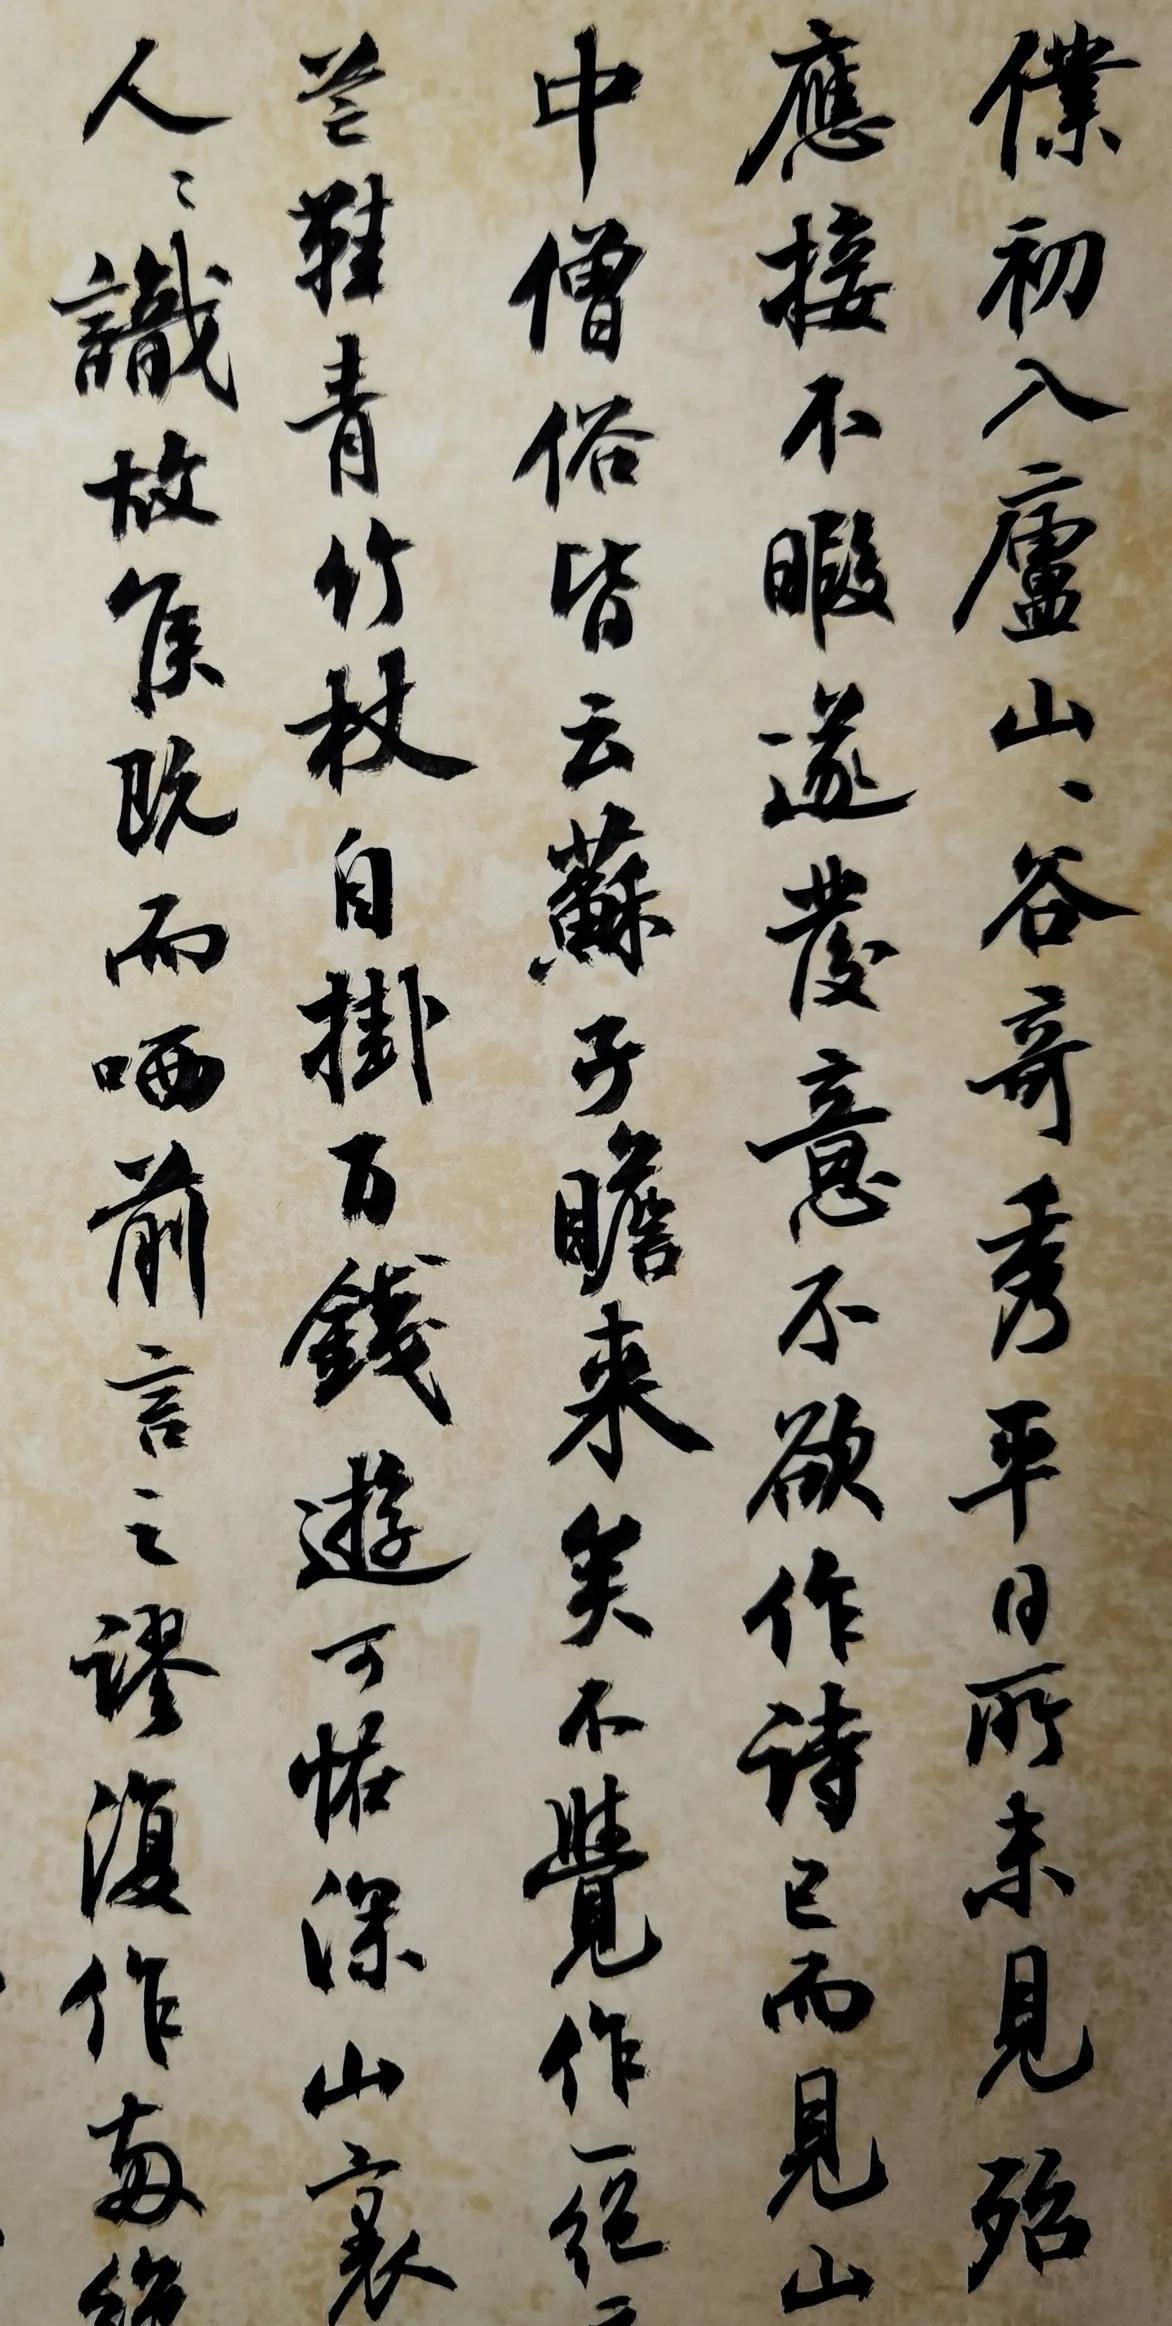 僕初入廬山、谷奇秀平日所未見殆
應接不暇遂發意不欲作詩已而見山
中僧俗皆云蘇子瞻來矣不覺作一絕云
芒鞋青竹杖自掛百錢遊可怪深山裏
人〻識故侯既而哂前言之謬復作兩絕